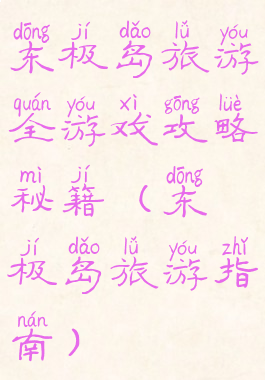 dōng jí dǎo lǚ yóu
东极岛旅游
quán yóu xì gōng lüè
全游戏攻略
mì jí dōng
秘籍（东
jí dǎo lǚ yóu zhǐ
极岛旅游指
nán
南）